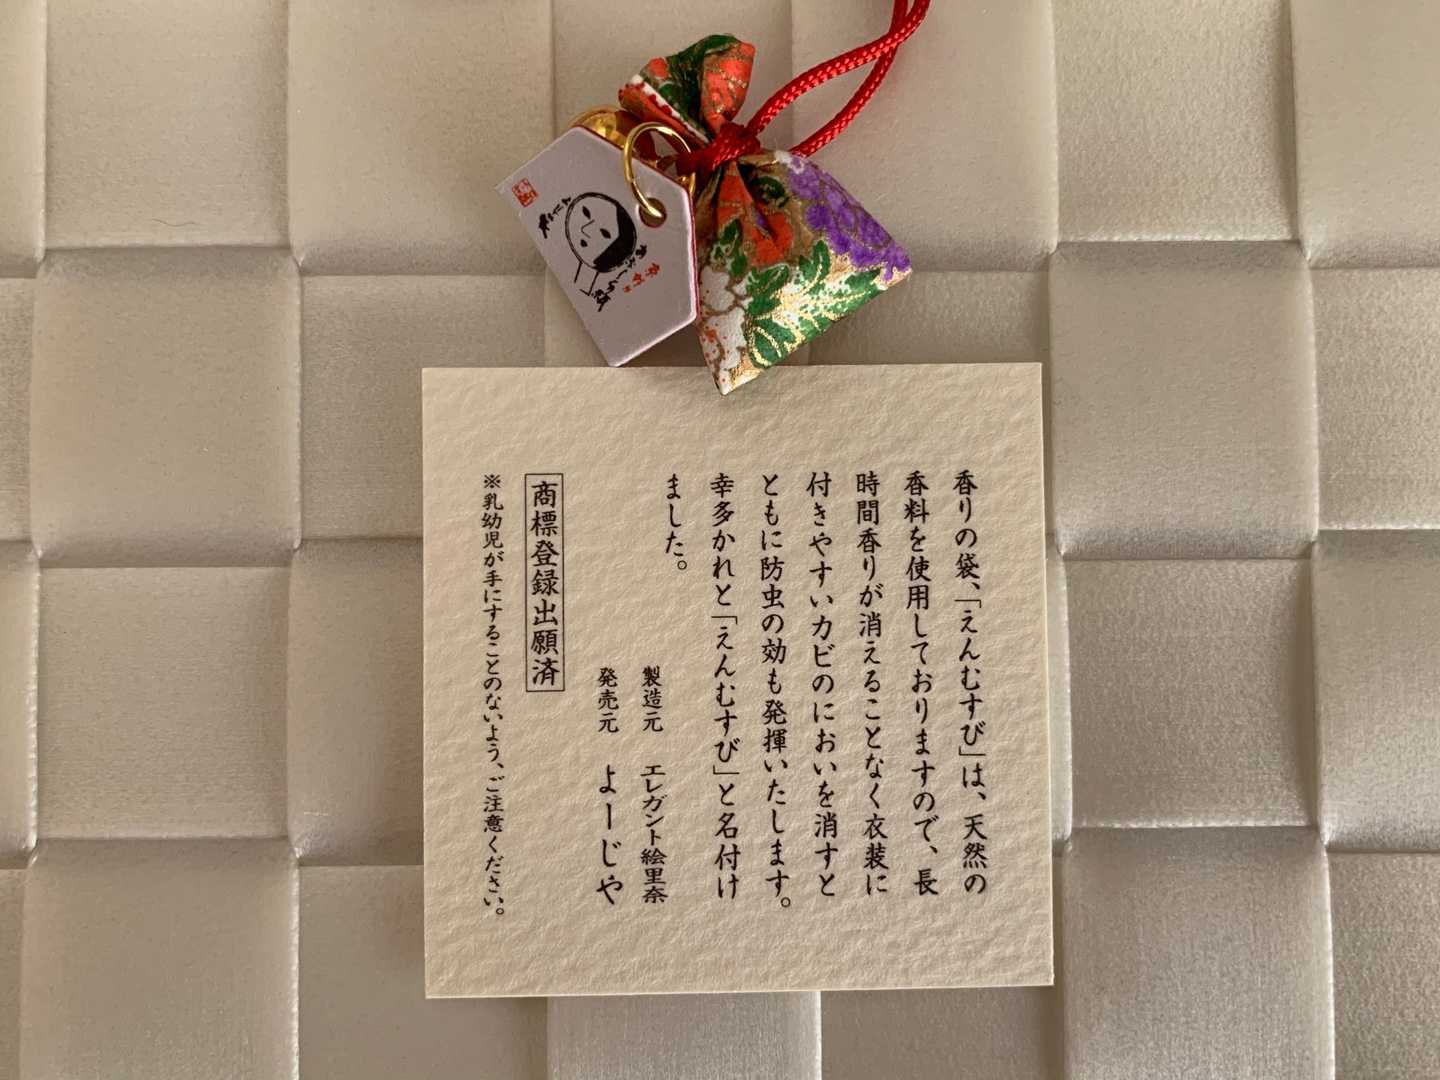 香りの袋、「えんむすび」は、天然の
香料を使用しておりますので、長
時間香りが消えることなく衣装に
付きやすいカビのにおいを消すと
ともに防虫の効も発揮いたします。
幸多かれと「えんむすび」と名付け
ました。
製造元 エレガント絵里奈
発売元 よーじや
商標登録出願済
※乳幼児が手にすることのないよう、ご注意ください。